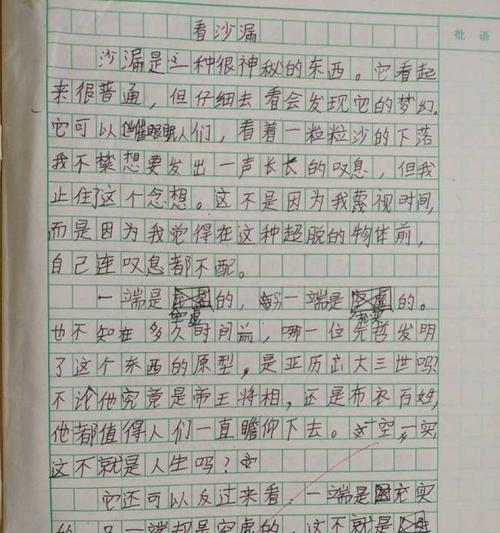 批语
看沙漏
沙漏是一种很神秘的东西。它看起
来很普通，但仔细去看会发现它的梦幻。
它可以催眠人们，看着一粒粒沙的下落
我不禁想要发出一声长长的叹息，但我
止住了这个念想。这不是因为我蔑视时间，
而是因为我觉得在这种超脱的物体前，
自己连叹息都不配。
一端是空虚的，另一端是充实的。
也不知在多久时间前，哪一位先哲发明
了这个东西的原型，是亚历山大三世吗？
不论他究竟是帝王将相，还是布衣百姓，
他都值得人们一直瞻仰下去。一空一实
这不就是人生吗？
它还可以反过来看，一端是充实
的，另一端却是空虚的，这不就是